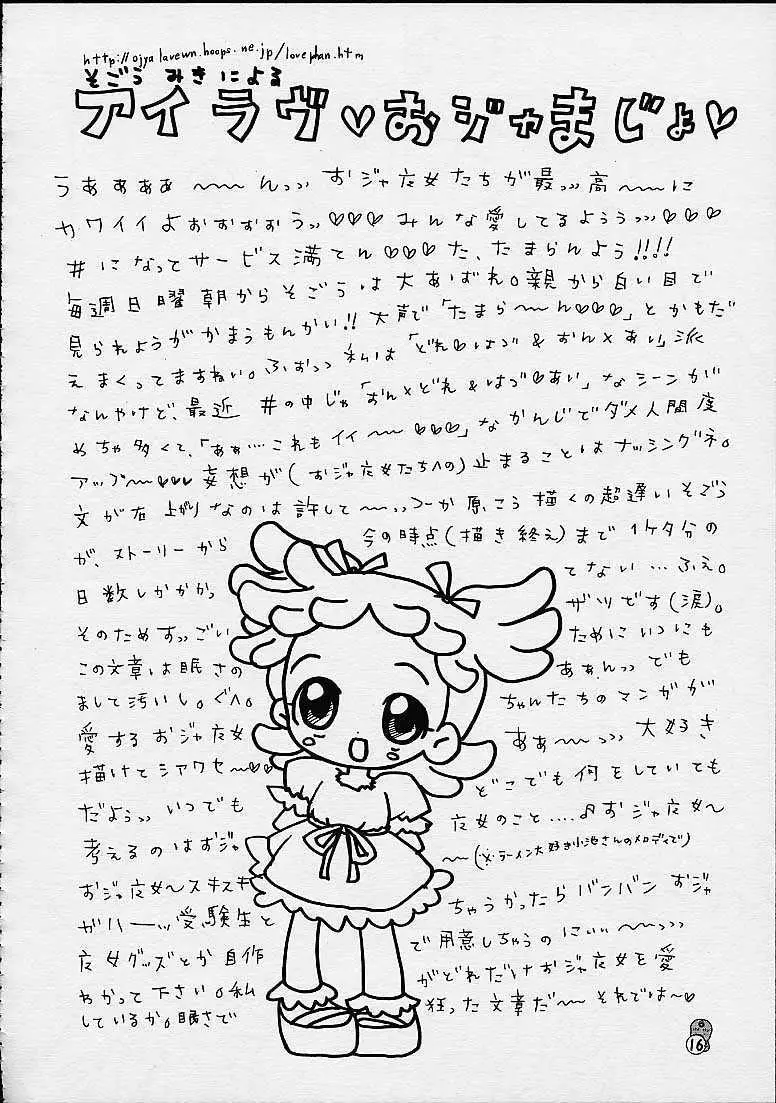 http://ojyalavewn.hoops.ne.jp/lovephan.htm
そごう みきによる
アイラヴ♡おジャまじょ♡
うああああ〜〜〜んっっ おジャ魔女たちが最っっ高〜〜〜に
カワイイよおおおおうっ♡♡♡ みんな愛してるよううっっ♡♡♡
#になってサービス満てん♡♡♡ た、たまらんよう!!!!
毎週日曜朝からそごうは大あばれ。親から白い目で
見られようがかまうもんかい!! 大声で「たまら〜〜ん♡♡♡」とかもだ
えまくってますねい。ふおっっ 私は「どれ♡はづ&おん×あい」派
なんやけど、最近 #の中じゃ「おん×どれ&はづ♡あい」なシーンが
めちゃ多くて、「あぁ…これもイイ〜〜♡♡♡」なかんじでダメ人間度
アップ〜〜♡♡♡ 妄想が(おジャ魔女たちへの)止まることはナッシングネ。
文が右上がりなのは許して〜〜っっ つーか原こう描くの超遅いそごう
が、ストーリーから 今の時点(描き終え)まで1ケタ分の
日数しかかかっ てない…ふえ。
そのためすっごい ザツです(涙)。
この文章は眠さの ためにいつにも
まして汚いし。ぐへ。 あぁんっっでも
愛するおジャ魔女 ちゃんたちのマンガが
描けてシアワセ〜♡♡ ああ〜〜っっっ 大好き
だようっっ いつでも どこでも何をしていても
考えるのはおジャ 魔女のこと……♪おジャ魔女〜
おジャ魔女〜スキスキ 〜〜(※ラーメン大好き小池さんのメロディで)
がハーーッッ 受験生と ちゃうかったらバンバン おジャ
魔女グッズとか自作 で用意しちゃうのにいぃ〜〜っっっ
わかって下さい。私 がどれだけおジャ魔女を愛
しているか。眠さで 狂った文章だ〜〜 それでは〜♡
16